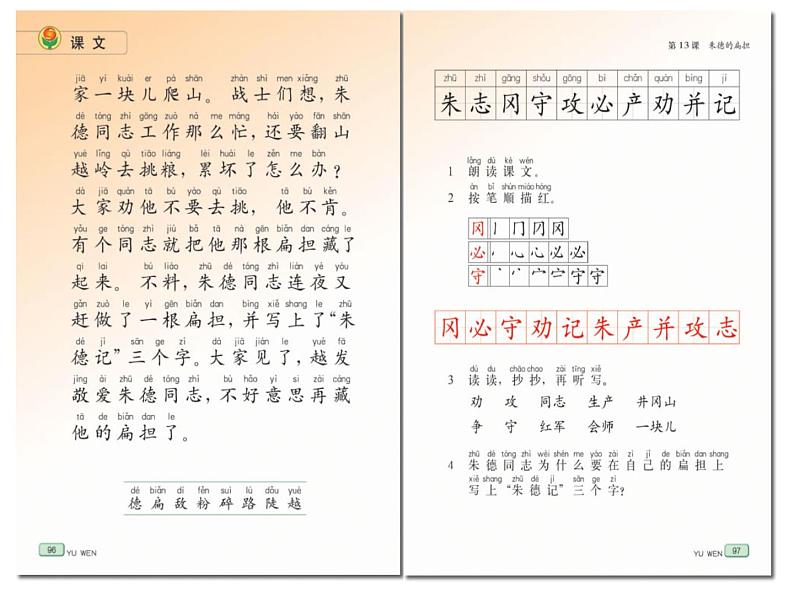 课文
jiā yí kuài er pá shān zhàn shì men xiǎng zhū
家一块儿爬山。战士们想，朱
dé tóng zhì gōng zuò nà me máng hái yào fān shān
德同志工作那么忙，还要翻山
yuè lǐng qù tiāo liáng lèi huài le zěn me bàn
越岭去挑粮，累坏了怎么办？
dà jiā quàn tā bú yào qù tiāo tā bù kěn
大家劝他不要去挑，他不肯。
yǒu ge tóng zhì jiù bǎ tā nà gēn biǎn dan cáng le
有个同志就把他那根扁担藏了
qǐ lai bú liào zhū dé tóng zhì lián yè yòu
起来。不料，朱德同志连夜又
gǎn zuò le yì gēn biǎn dan bìng xiě shang le zhū
赶做了一根扁担，并写上了“朱
dé jì sān ge zì dà jiā jiàn le yuè fā
德记”三个字。大家见了，越发
jìng ài zhū dé tóng zhì bù hǎo yì si zài cáng
敬爱朱德同志，不好意思再藏
tā de biǎn dan le
他的扁担了。
dé biǎn dí fěn suì lù dǒu yuè
德扁敌粉碎路陡越
96 YU WEN
第13课 朱德的扁担
zhū zhì gāng shǒu gōng bì chǎn quàn bìng jì
朱志冈守攻必产劝并记
lǎng dú kè wén
1 朗读课文。
àn bǐ shùn miáo hóng
2 按笔顺描红。
冈丨冂冈冈
必
守
冈必守劝记朱产并攻志
dú du chāo chao zài tīng xiě
3 读读，抄抄，再听写。
劝 攻 同志 生产 井冈山
争 守 红军 会师 一块儿
zhū dé tóng zhì wèi shén me yào zài zì jǐ de biǎn dan shang
4 朱德同志为什么要在自己的扁担上
xiě shang zhū dé jì sān ge zì
写上“朱德记”三个字？
YU WEN 97